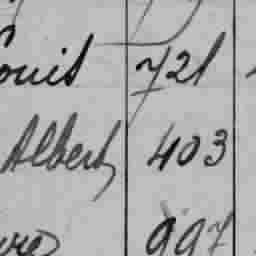 ouis 721
Albert, 403
997